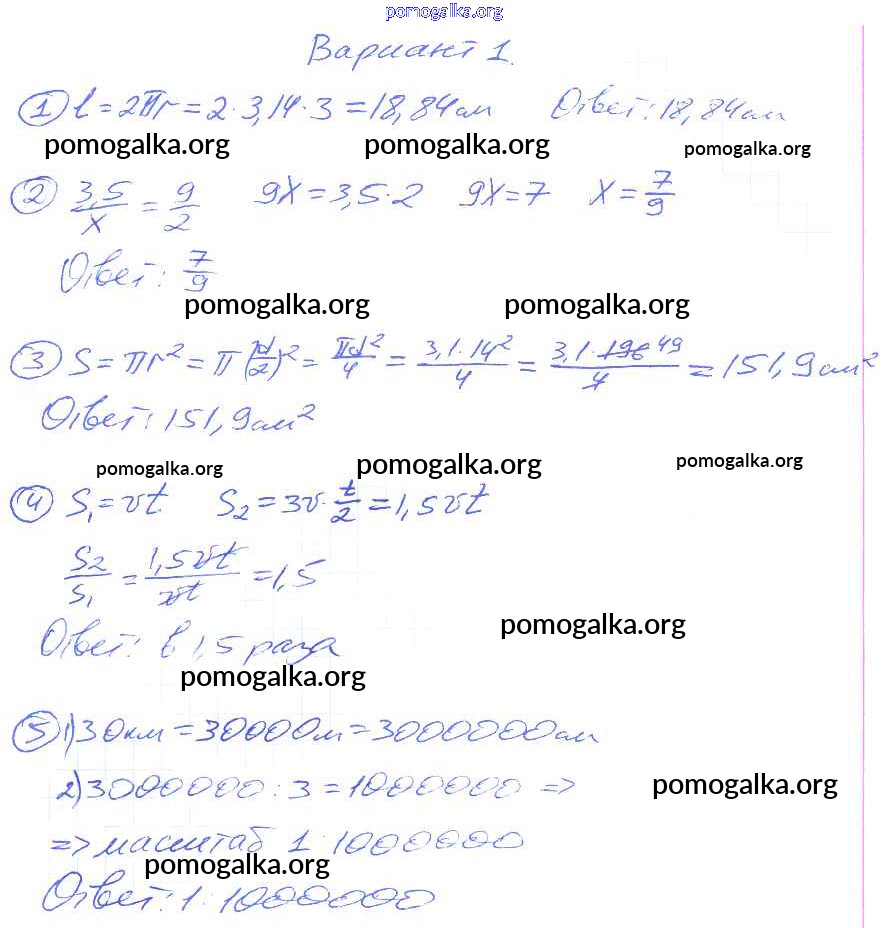 pomogalka.org
Вариант 1.
① l = 2πr = 2 · 3,14 · 3 = 18,84 см Ответ: 18,84 см
pomogalka.org pomogalka.org pomogalka.org
② 3,5/x = 9/2 9x = 3,5 · 2 9x = 7 x = 7/9
Ответ: 7/9
pomogalka.org pomogalka.org
③ S = πr² = π(d/2)² = πd²/4 = 3,1 · 14²/4 = 3,1 · 196 49/4 = 151,9 см²
Ответ: 151,9 см²
pomogalka.org pomogalka.org pomogalka.org
④ S₁ = vt S₂ = 3v · t/2 = 1,5vt
S₂/S₁ = 1,5vt/vt = 1,5
Ответ: в 1,5 раза
pomogalka.org
pomogalka.org
⑤ 1) 30 км = 30000 м = 3000000 см
2) 3000000 : 3 = 1000000 =>
pomogalka.org
=> масштаб 1 : 1000000
pomogalka.org
Ответ: 1 : 1000000